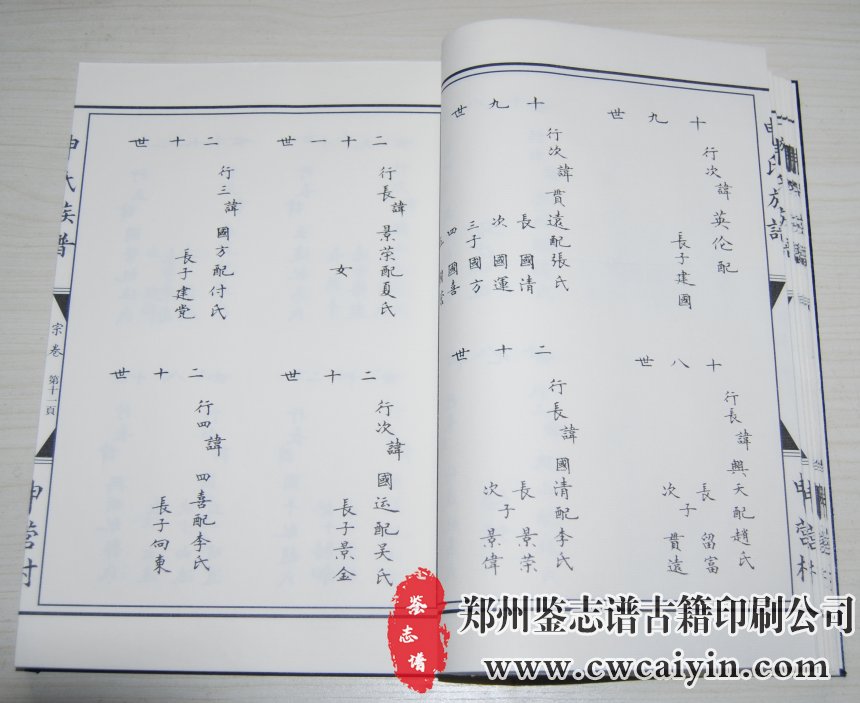 十九世
行次諱英伦配
長子建國
十八世
行長諱興天配趙氏
長子留富
次子貴遠
十九世
行次諱貴遠配張氏
長國清
次國運
三子國方
四國喜
二十世
行長諱國清配李氏
長子景荣
次子景偉
二十一世
行長諱景荣配夏氏
女
二十世
行次諱國运配吴氏
長子景金
二十世
行三諱國方配付氏
長子建党
二十世
行四諱四喜配李氏
長子向東
申氏族普
宗卷
第十一頁
申营村
鉴志谱
郑州鉴志谱古籍印刷公司
www.cwcaiyin.com